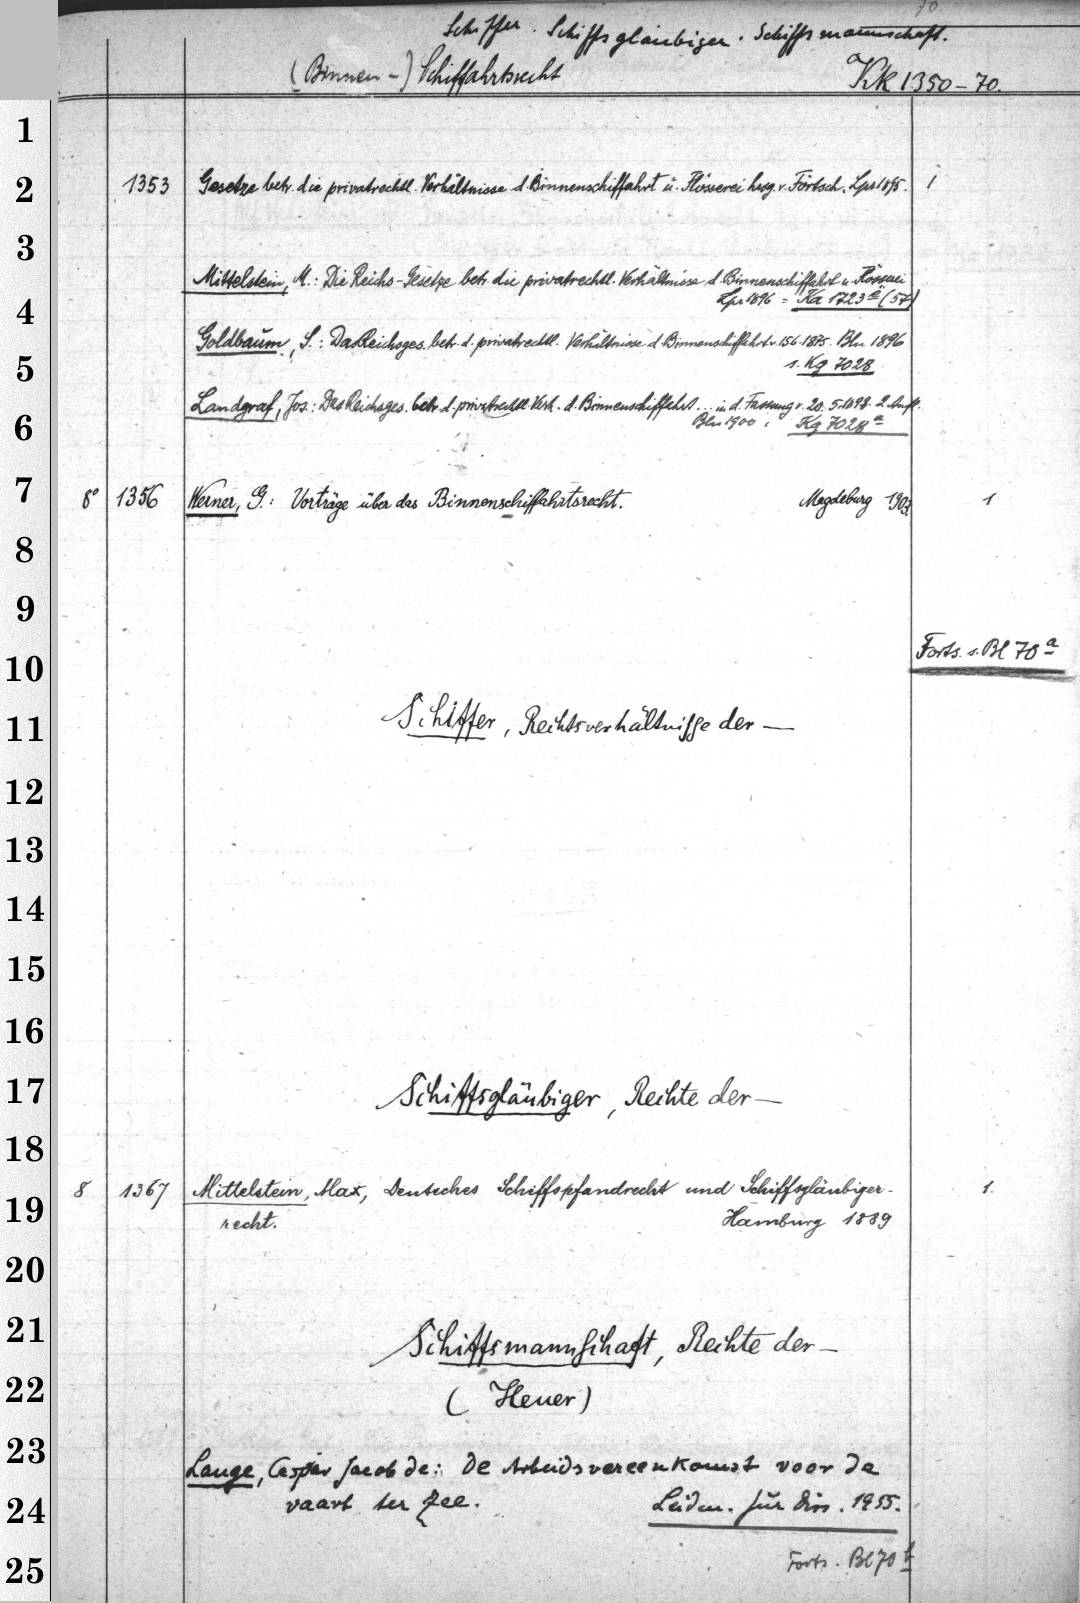 70.
Schiffer. Schiffsgläubiger. Schiffsmannschaft.
(Binnen-) Schiffahrtsrecht Kk 1350-70.
1
2 1353 Gesetze betr. die privatrechtl. Verhältnisse d. Binnenschiffahrt u. Flösserei hrsg. v. Förtsch. Lpz 1895. 1
3
Mittelstein, M.: Die Reichs-Gesetze betr. die privatrechtl. Verhältnisse d. Binnenschiffahrt u. Flösserei
4 Lpz 1896 = Ka 1723 a (57)
Goldbaum, S.: Das Reichsges. betr. d. privatrechtl. Verhältnisse d. Binnenschiffahrt v. 15.6.1895. Bln 1896
5 s. Kg 7028
Landgraf, Jos.: Das Reichsges. betr. d. privatrechtl. Verh. d. Binnenschiffahrt... in d. Fassung v. 20.5.1898. 2. Aufl.
6 Bln 1900 Kg 7028 a
7 8° 1356 Werner, G.: Vorträge über das Binnenschiffahrtsrecht. Magdeburg 1903. 1
8
9
Forts. s. Bl 70 a
10
11 Schiffer, Rechtsverhältnisse der —
12
13
14
15
16
17 Schiffsgläubiger, Rechte der —
18
8 1367 Mittelstein, Max, Deutsches Schiffspfandrecht und Schiffsgläubiger- 1.
19 recht. Hamburg 1889
20
21 Schiffsmannschaft, Rechte der —
22 (Heuer)
23 Lange, Caspar Jacob de: De Arbeidsvereenkomst voor de
24 vaart ter Zee. Leiden. jur Diss. 1955.
25 Forts. Bl 70 b